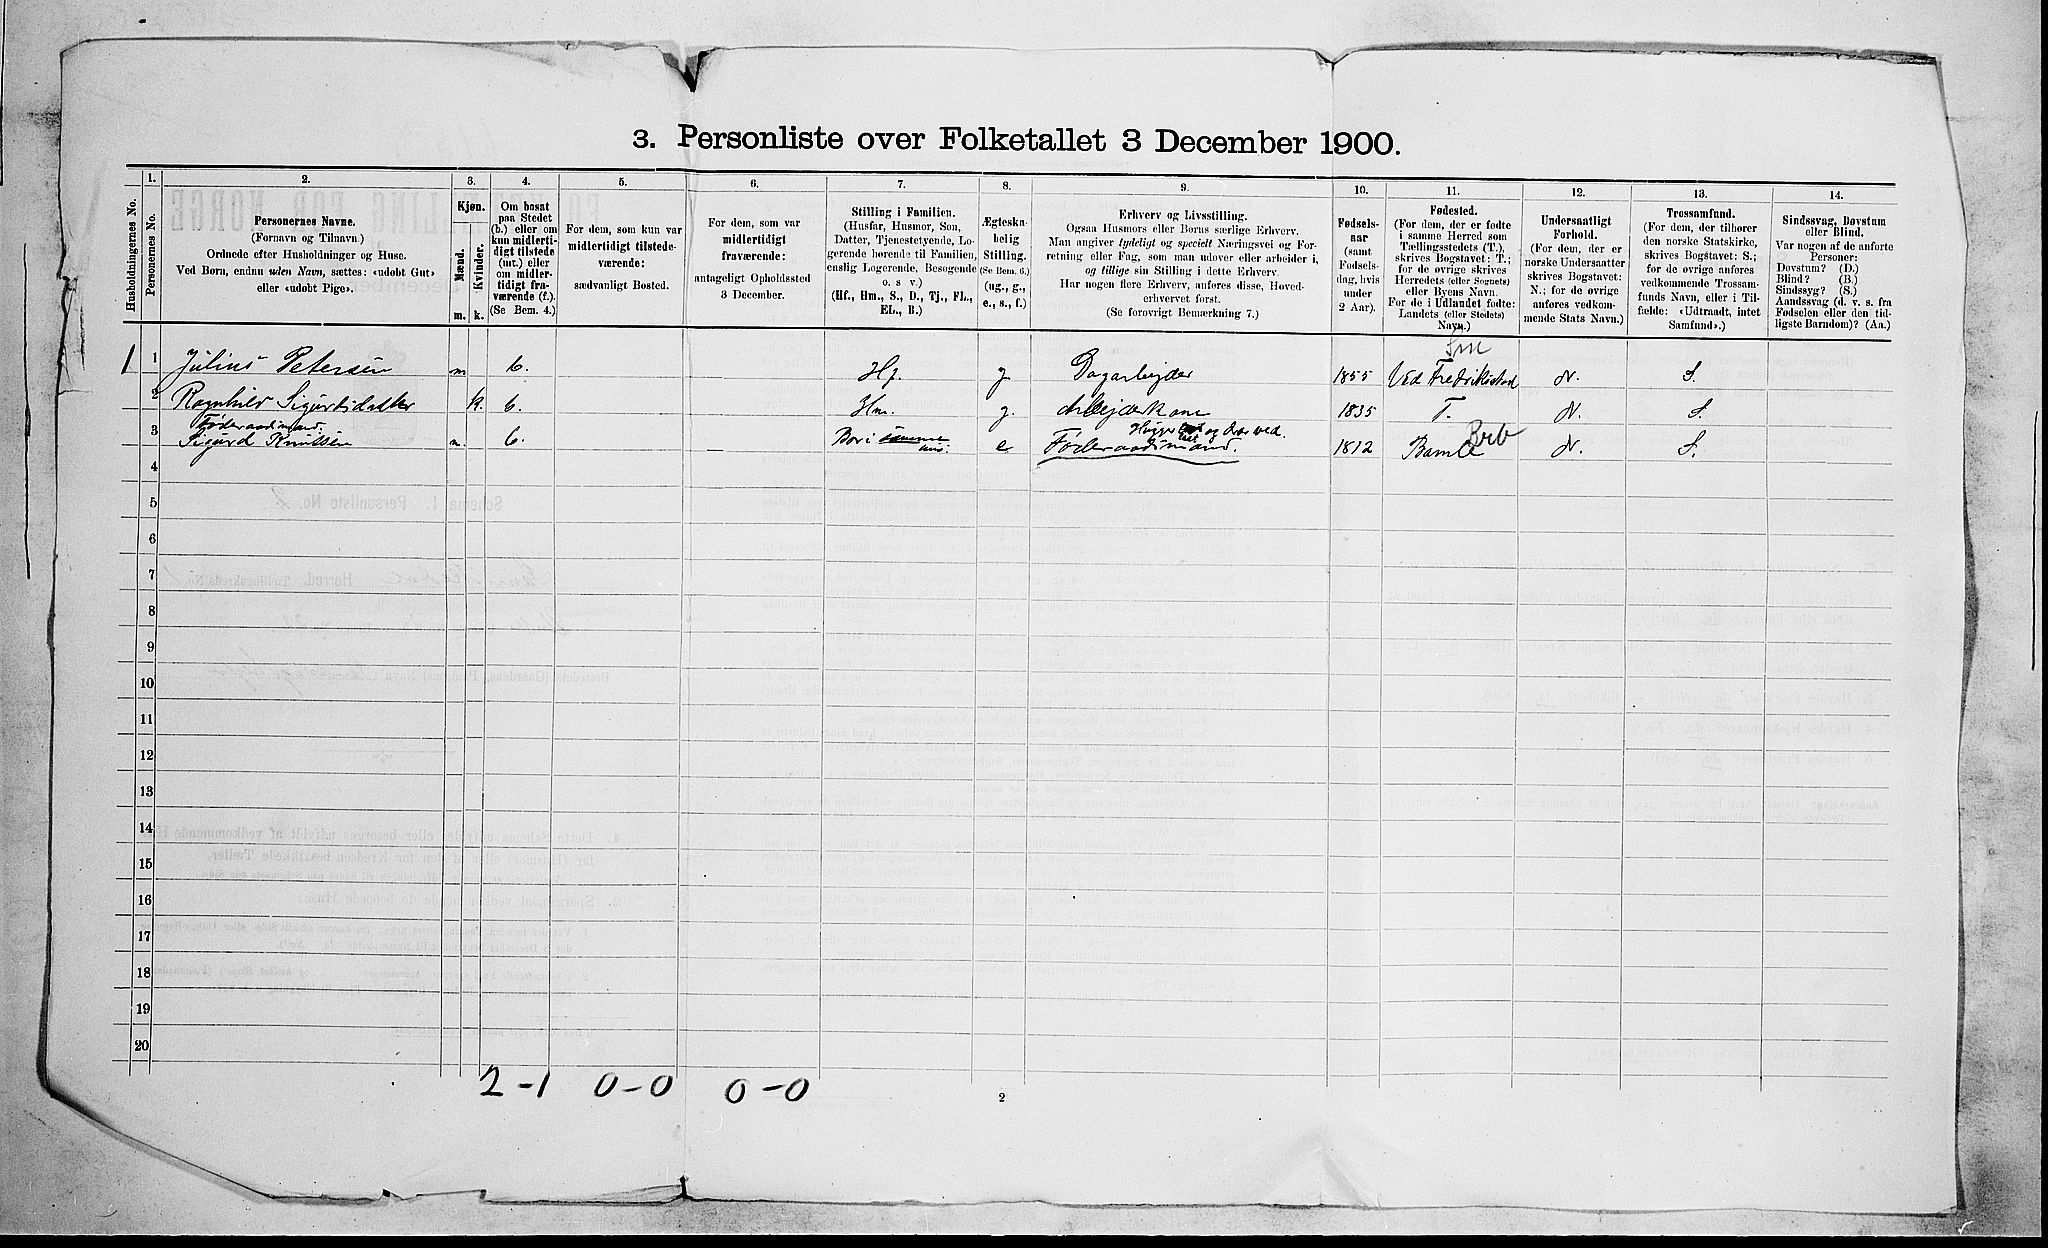 3. Personliste over Folketallet 3 December 1900.
Husholdningernes No.
1.
Personernes No.
2.
Personernes Navne.
(Fornavn og Tilnavn.)
Ordnede efter Husholdninger og Huse.
Ved Børn, endnu uden Navn, sættes: «udøbt Gut»
eller «udøbt Pige».
3.
Kjøn.
Mænd.
Kvinder.
m. k.
4.
Om bosat
paa Stedet
(b.) eller om
kun midlerti-
digt tilstede
(mt.) eller
om midler-
tidigt fra-
værende (f.).
(Se Bem. 4.)
5.
For dem, som kun var
midlertidigt tilstede-
værende:
sædvanligt Bosted.
6.
For dem, som var
midlertidigt
fraværende:
antageligt Opholdssted
3 December.
7.
Stilling i Familien.
(Husfar, Husmor, Søn,
Datter, Tjenestetyende, Lo-
gerende hørende til Familien,
enslig Logerende, Besøgende
o. s v.)
(Hf., Hm., S., D., Tj., FL.,
EL., B.)
8.
Ægteska-
belig
Stilling.
(Se Bem. 6.)
(ug., g.,
e., s., f.)
9.
Erhverv og Livsstilling.
Ogsaa Husmors eller Børns særlige Erhverv.
Man angiver tydeligt og specielt Næringsvei og For-
retning eller Fag, som man udøver eller arbeider i,
og tillige sin Stilling i dette Erhverv.
Har nogen flere Erhverv, anføres disse, Hoved-
erhvervet først.
(Se forøvrigt Bemærkning 7.)
10.
Fødsels-
aar
(samt
Fødsels-
dag, hvis
under
2 Aar).
11.
Fødested.
(For dem, der er fødte
i samme Herred som
Tællingsstedets (T.),
skrives Bogstavet: T.;
for de øvrige skrives
Herredets (eller Sognets)
eller Byens Navn.
For de i Udlandet fødte:
Landets (eller Stedets)
Navn.)
12.
Undersaatligt
Forhold.
(For dem, der er
norske Undersaatter
skrives Bogstavet:
N.; for de øvrige
anføres vedkom-
mende Stats Navn.)
13.
Trossamfund.
(For dem, der tilhører
den norske Statskirke,
skrives Bogstavet: S.;
for de øvrige anføres
vedkommende Trossam-
funds Navn, eller i Til-
fælde: «Udtraadt, intet
Samfund».)
14.
Sindssvag, Døvstum
eller Blind.
Var nogen af de anførte
Personer:
Døvstum? (D.)
Blind? (B.)
Sindssyg? (S.)
Aandssvag (d. v. s. fra
Fødselen eller den tid-
ligste Barndom)? (Aa.)
Sm
1 1 Julius Petersen m b. Hf. g Dagarbejder 1855 Ved Fredrikstad N. S.
2 Ragnhild Sigurtsdatter k. b. Hm. g. Arbejderkone 1835 T. N. S.
Føderaadsmand.
3 Sigurd Knutsen m. b. Bor i samme hus. e Føderaadsmand. Hugger og ved. 1812 Bamle Brb N. S.
4
5
6
7
8
9
10
11
12
13
14
15
16
17
18
19
20
2-1 0-0 0-0
2